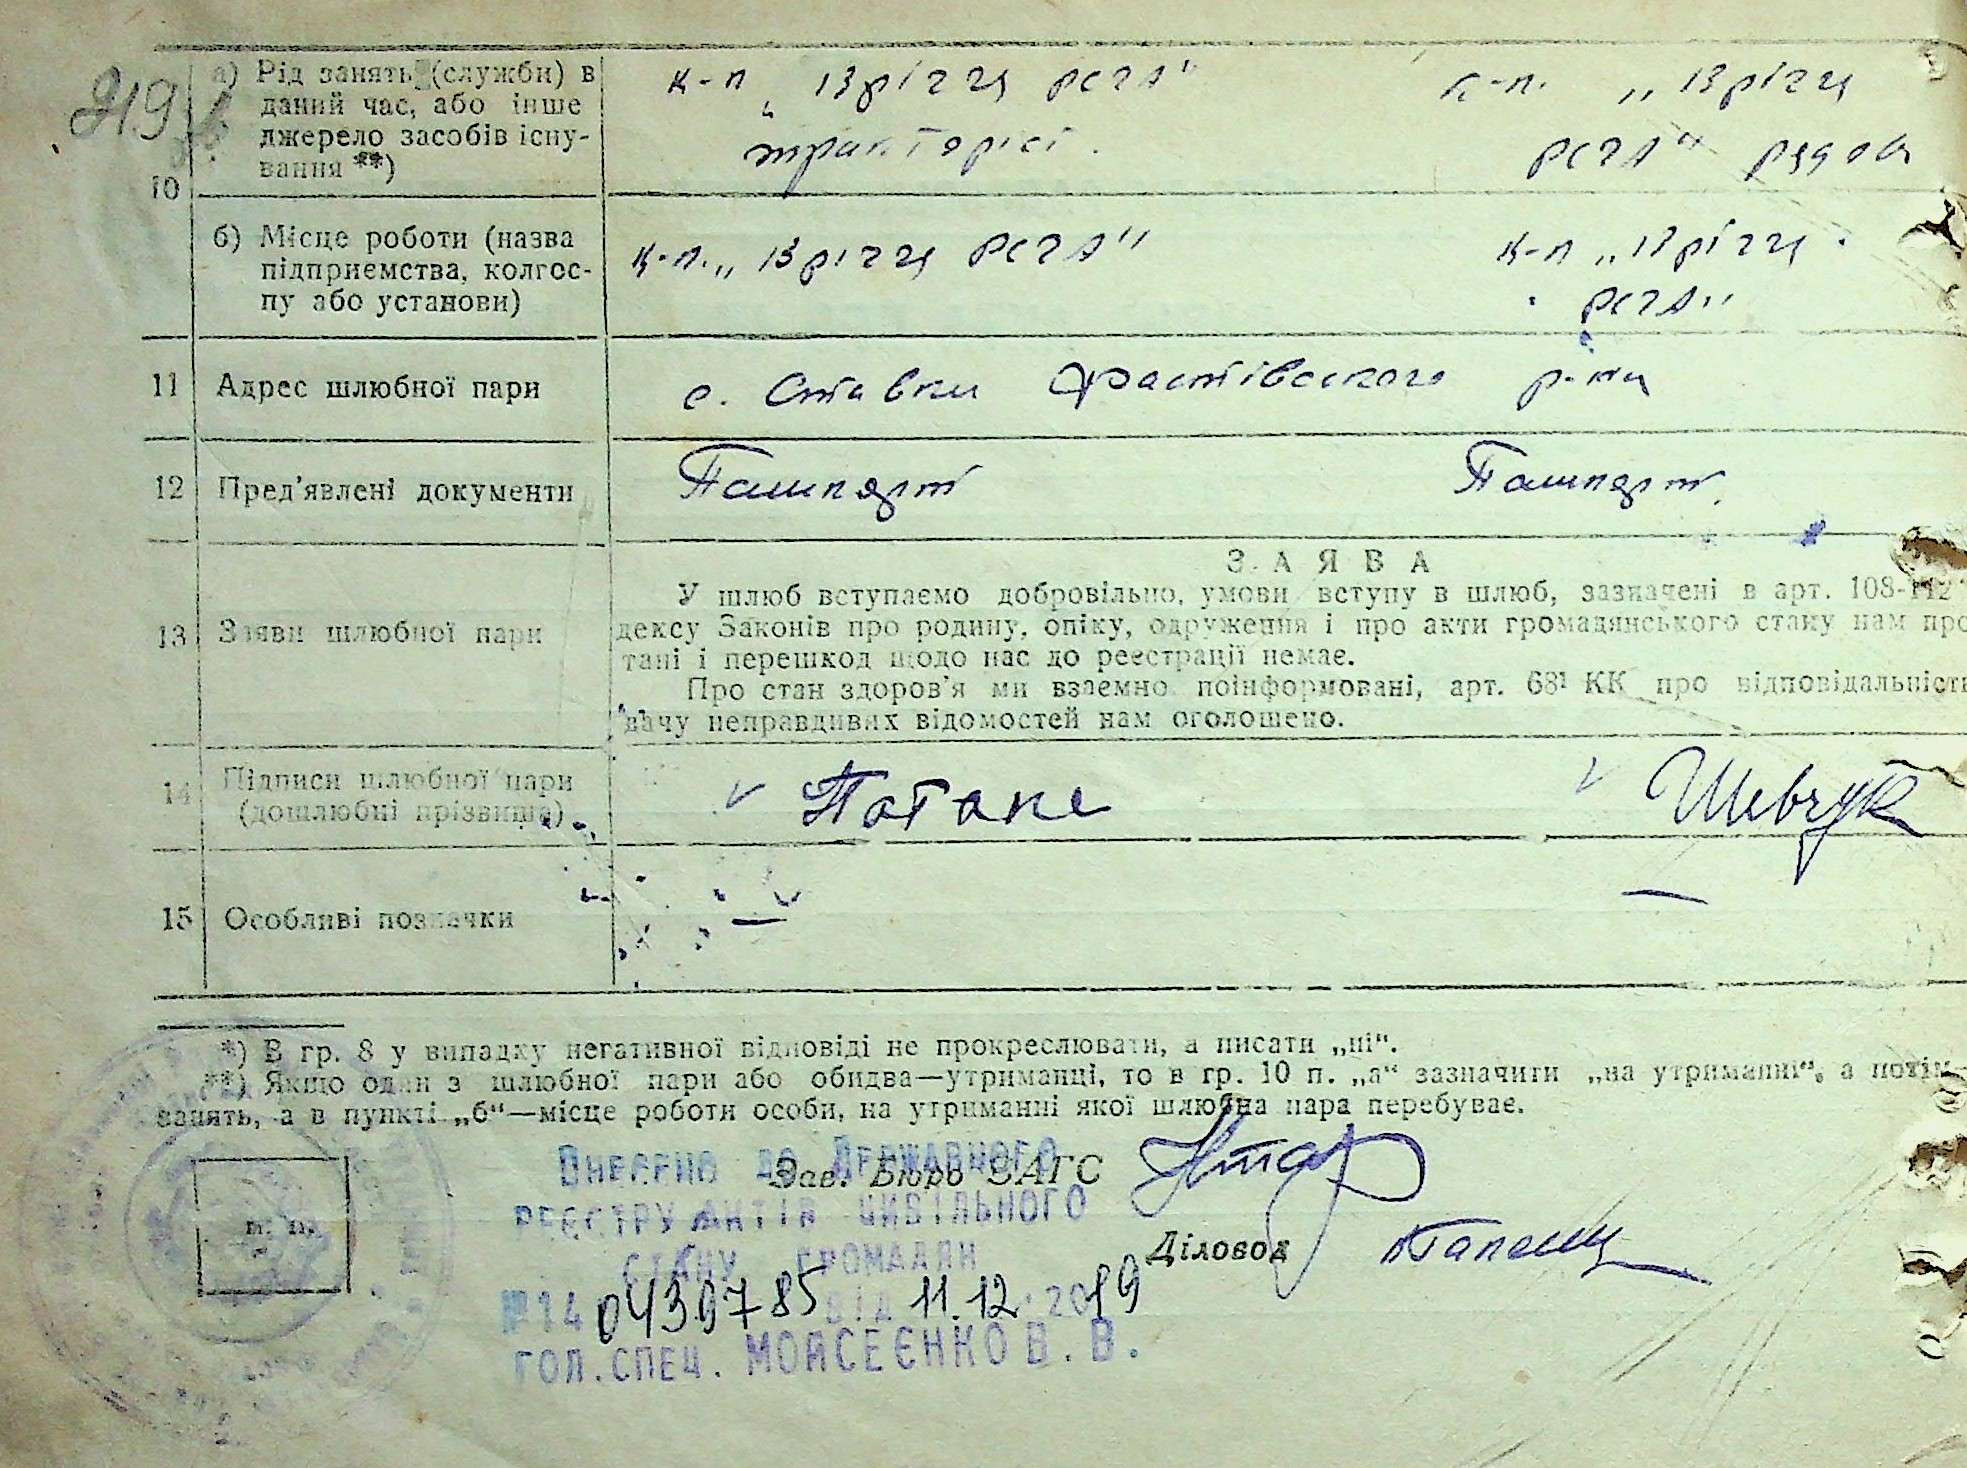 219
а) Рід занять (служби) в даний час, або інше джерело засобів існування **)
к-п „13 річчя РСЧА" тракторист.
к-п. „13 річчя РСЧА" рядова
10
б) Місце роботи (назва підприємства, колгоспу або установи)
к-п. „13 річчя РСЧА"
к-п „13 річчя РСЧА"
11 Адрес шлюбної пари
с. Ставки Фастівського р-ну
12 Пред'явлені документи
Пашпорт
Пашпорт
13 Заяви шлюбної пари
ЗАЯВА
У шлюб вступаємо добровільно, умови вступу в шлюб, зазначені в арт. 108-112
дексу Законів про родину, опіку, одруження і про акти громадянського стану нам про
тані і перешкод щодо нас до реєстрації немає.
Про стан здоров'я ми взаємно поінформовані, арт. 68¹ КК про відповідальність
дачу неправдивих відомостей нам оголошено.
14 Підписи шлюбної пари (дошлюбні прізвища)
Шевчук
15 Особливі позначки
*) В гр. 8 у випадку негативної відповіді не прокреслювати, а писати „ні".
**) Якщо один з шлюбної пари або обидва—утриманці, то в гр. 10 п. „а" зазначити „на утриманні", а потім
занять, а в пункті „б"—місце роботи особи, на утриманні якої шлюбна пара перебуває.
м. п.
Зав. Бюро ЗАГС
Діловод
Внесено до Державного
реєстру актів цивільного
стану громадян
№14 0439785 від 11.12.2019
гол.спец. Моисеєнко В.В.